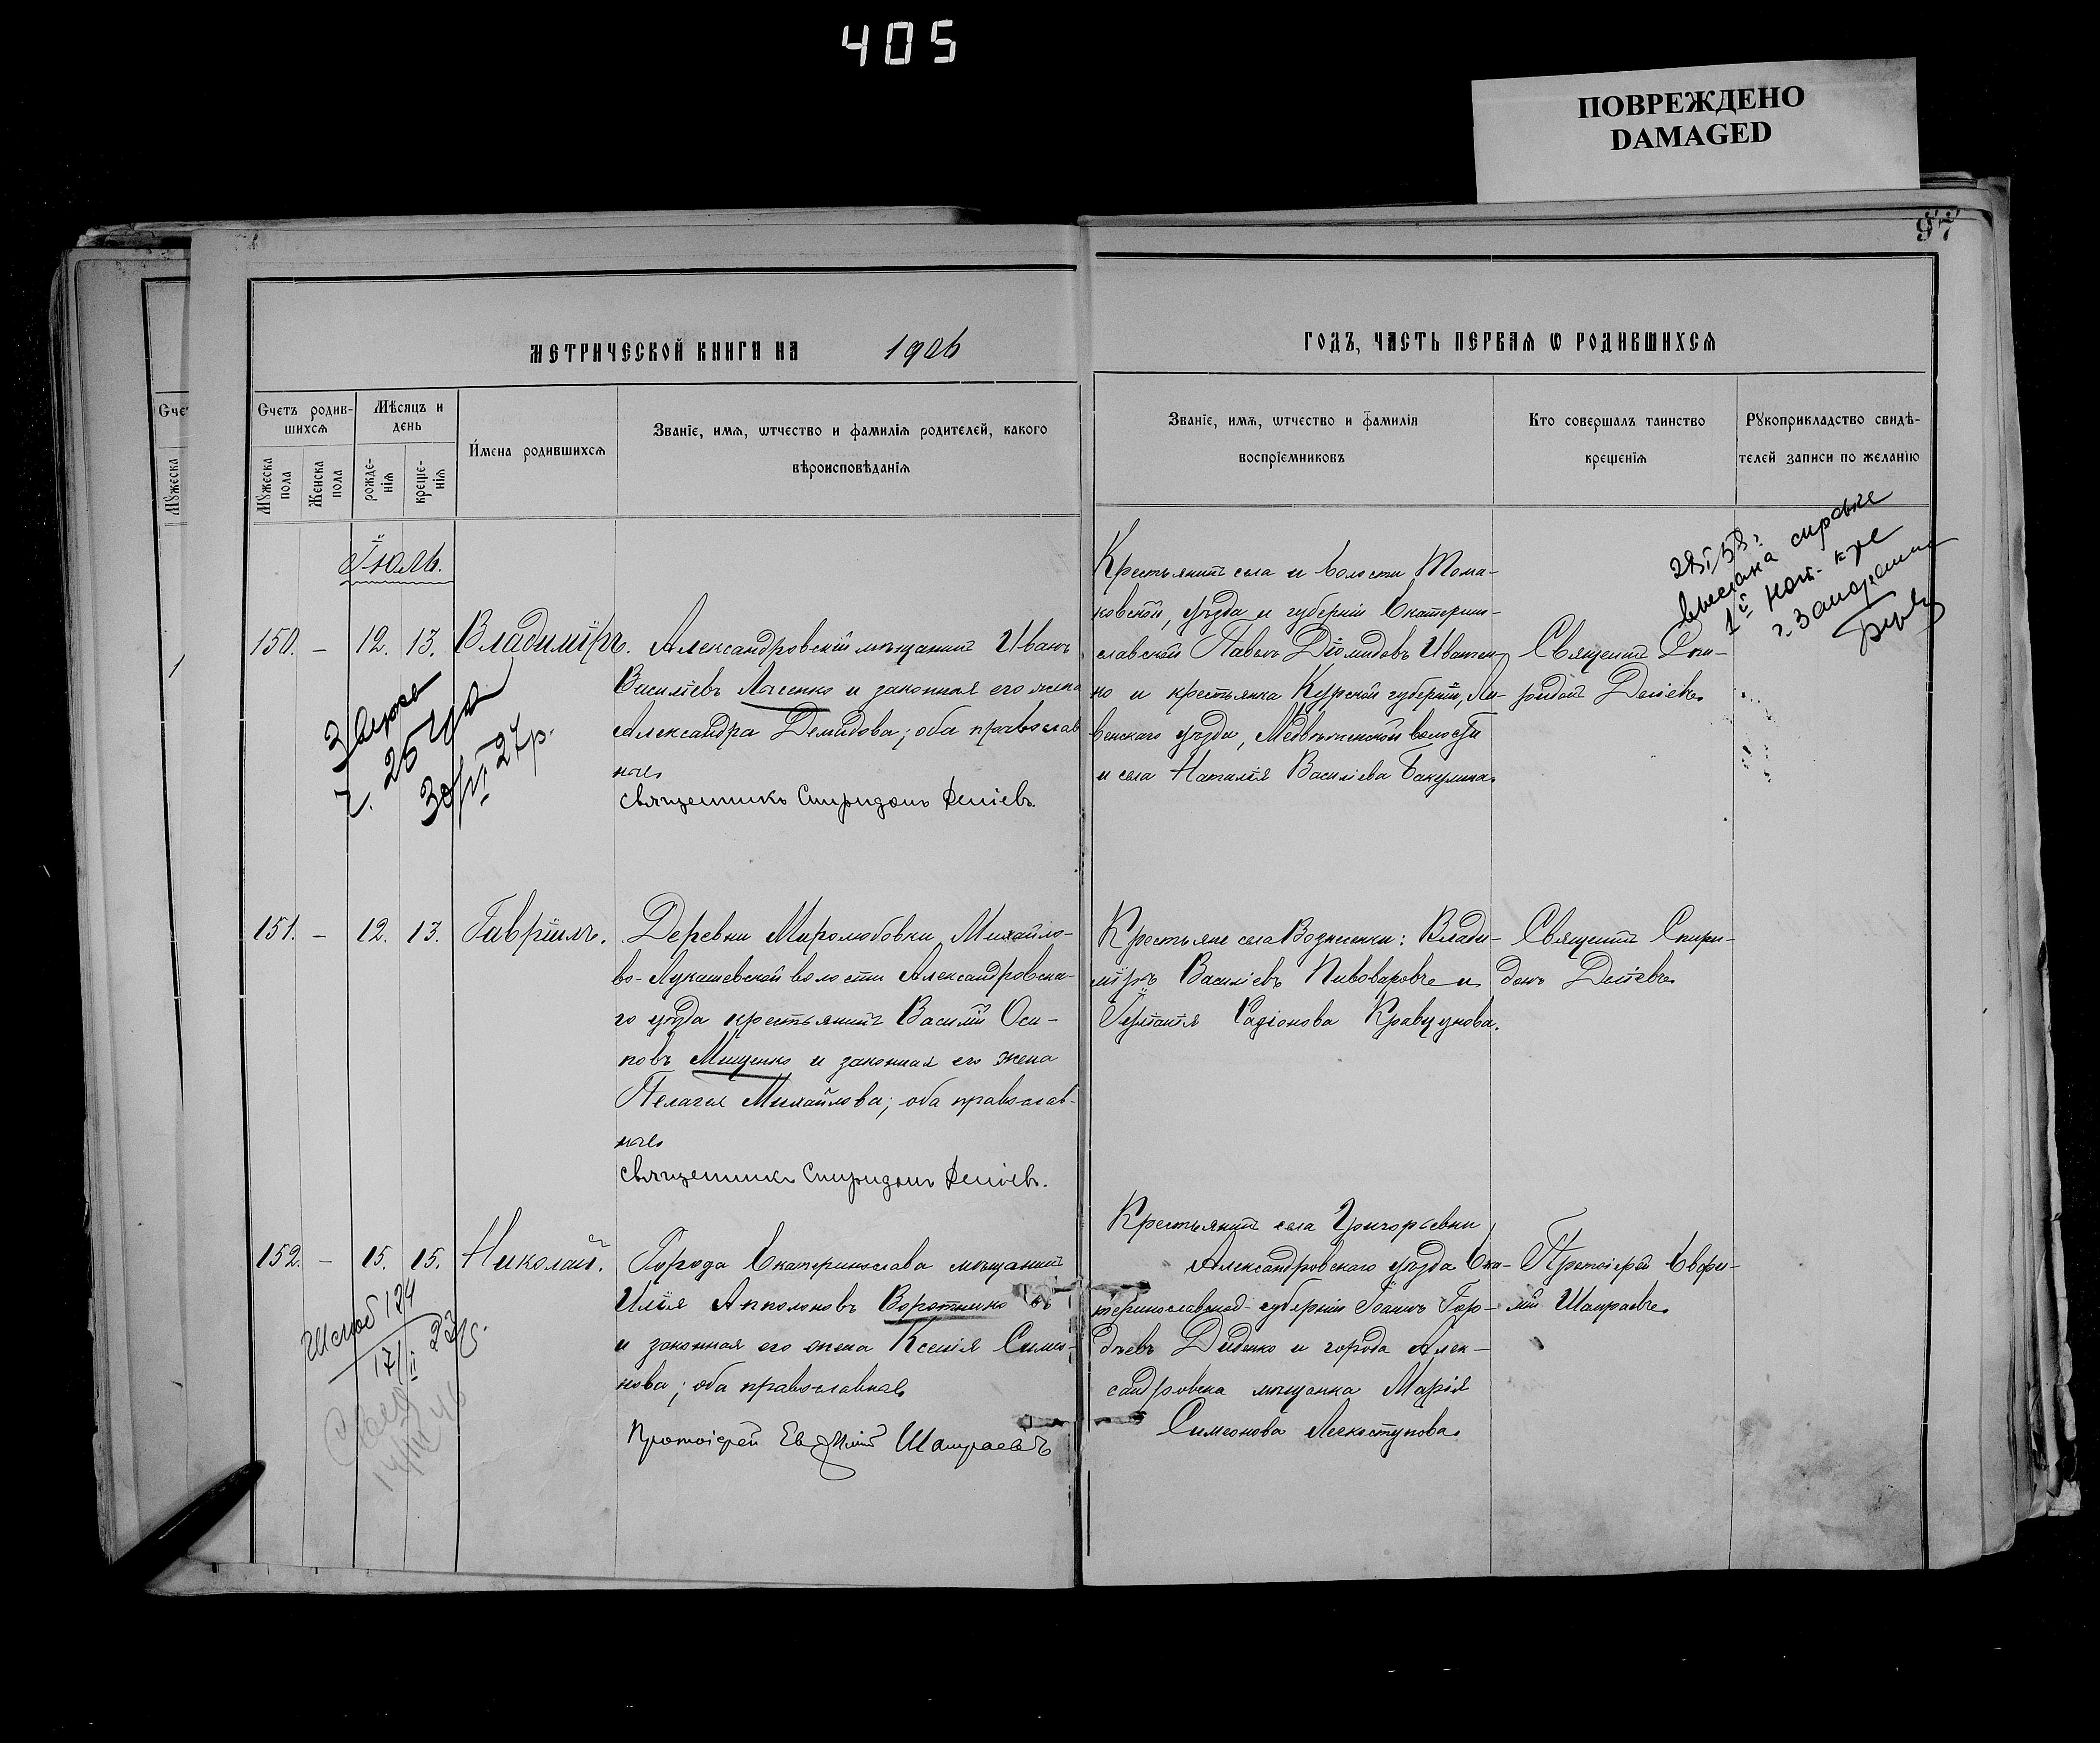 405
ПОВРЕЖДЕНО
DAMAGED
97
МЕТРИЧЕСКОЙ КНИГИ НА 1906
ГОДЪ, ЧАСТЬ ПЕРВАЯ Ѡ РОДИВШИХСЯ
Счетъ родив-
шихся
Мѣсяцъ и
день
Мужеска
пола
Женска
пола
рожде-
нія
креще-
нія
Имена родившихся
Званіе, имя, ѿчество и фамилія родителей, какого
вѣроисповѣданія
Званіе, имя, ѿчество и фамилія
воспріемниковъ
Кто совершалъ таинство
крещенія
Рукоприкладство свидѣ-
телей записи по желанію
Сче
Мужеска
1
Іюль.
150. – 12. 13. Владиміръ.
Александровскій мѣщанинъ Иванъ
Василіевъ Лысенко и законная его жена
Александра Демидова; оба православ
ные
Священникъ Спиридонъ
Крестьянинъ села и волости Тома-
ковской, уѣзда и губерніи Екатерино-
славской Павелъ Діомидовъ Иванчен
ко и крестьянка Курской губерніи,
уѣзда, волости
и села Наталія Василіева Бакулина
Священникъ Спи-
ридонъ
28/I 58 г.
выслана справка
1й нот. к-ре
г. Запорожья
25
30/VI 27р.
151. – 12. 13. Гавріилъ.
Деревни Миролюбовки Михайло-
во-Лукашевской волости Александровска-
го уѣзда крестьянинъ Василій Оси-
повъ Мищенко и законная его жена
Пелагея Михайлова; оба православ-
ные
Священникъ Спиридонъ
Крестьяне села Вознесенки: Влади-
міръ Василіевъ Пивоваровъ и
Родіонова Кравцунова.
Священникъ Спири-
донъ
152. – 15. 15. Николай.
Города Екатеринослава мѣщанинъ
Илія Апполоновъ
и законная его жена Ксенія Симео-
нова; оба православные
Протоіерей Евѳимій
Крестьянинъ села Григорьевки
Александровскаго уѣзда Ека-
теринославской губерніи Іоаннъ Гор-
дѣевъ Диденко и города Алек-
сандровска мѣщанка Марія
Симеонова
Протоіерей Евфи-
мій
124
17/II